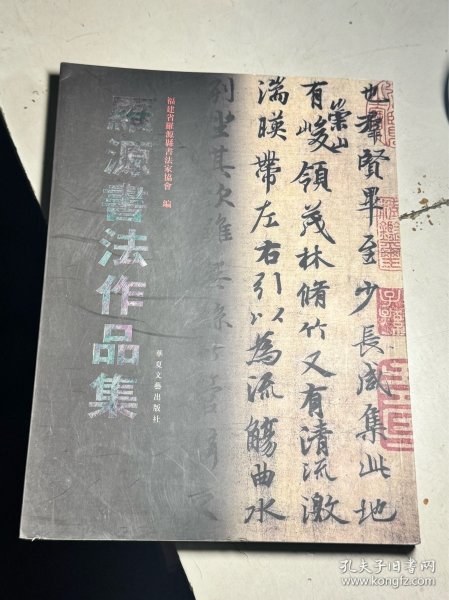 羅源書法作品集
福建省羅源縣書法家協會 編
華夏文藝出版社
也羣賢畢至少長咸集此地
有崇山峻領茂林脩竹又有清流激
湍暎帶左右引以為流觴曲水
列坐其次雖無
孔夫子旧书网
www.kongfz.com